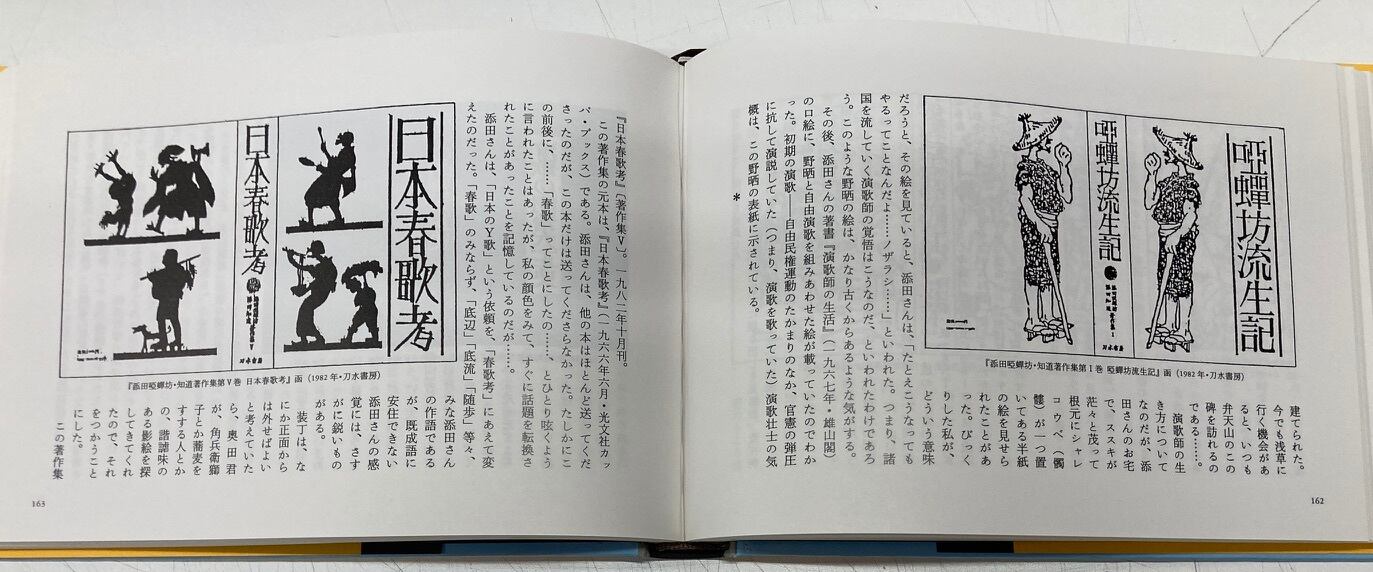 啞蟬坊流生記
啞蟬坊流生記
添田啞蟬坊
添田知道
著作集 I
刀水書房
『添田啞蟬坊・知道著作集第Ⅰ巻 啞蟬坊流生記』函（1982 年・刀水書房）
建てられた。
今でも浅草に
行く機会があ
ると、いつも
弁天山のこの
碑を訪れるの
である……。
演歌師の生
き方について
なのだが、添
田さんのお宅
で、ススキが
茫々と茂って
根元にシャレ
コウベ（髑
髏）が一つ置
いてある半紙
の絵を見せら
れたことがあ
った。びっく
りした私が、
どういう意味
だろうと、その絵を見ていると、添田さんは、「たとえこうなっても
やるってことなんだよ……ノザラシ……」といわれた。つまり、諸
国を流していく演歌師の覚悟はこうなのだ、といわれたわけであろ
う。このような野晒の絵は、かなり古くからあるような気がする。
その後、添田さんの著書『演歌師の生活』（一九六七年・雄山閣）
の口絵に、野晒と自由演歌を組みあわせた絵が載っていたのでわか
った。初期の演歌——自由民権運動のたかまりのなか、官憲の弾圧
に抗して演説していた（つまり、演歌を歌っていた）演歌壮士の気
概は、この野晒の表紙に示されている。
＊
162
『日本春歌考』（著作集Ⅴ）。一九八二年十月刊。
この著作集の元本は、『日本春歌考』（一九六六年六月・光文社カッ
パ・ブックス）である。添田さんは、他の本はほとんど送ってくだ
さったのだが、この本だけは送ってくださらなかった。たしかにこ
の前後に、……「春歌」ってことにしたの……、とひとり呟くよう
に言われたことはあったが、私の顔色をみて、すぐに話題を転換さ
れたことがあったことを記憶しているのだが……。
添田さんは、「日本のＹ歌」という依頼を、「春歌考」にあえて変
えたのだった。「春歌」のみならず、「底辺」「底流」「随歩」等々、
日本春歌考
日本春歌考
刀水書房
『添田啞蟬坊・知道著作集第Ⅴ巻 日本春歌考』函（1982 年・刀水書房）
みな添田さん
の作語である
が、既成語に
安住できない
添田さんの感
覚には、さす
がに鋭いもの
がある。
装丁は、な
にか正面から
は外せばよい
と考えていた
ら、奥田君
が、角兵衛獅
子とか蕎麦を
すする人とか
の、諧謔味の
ある影絵を探
してきてくれ
たので、それ
をつかうこと
にした。
この著作集
163